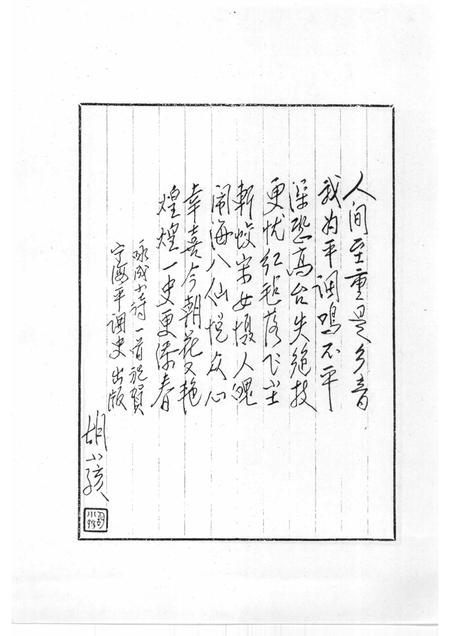 人间至重是乡音
我为平调鸣不平
深恐高台失绝技
更忧红毡落飞尘
斬蛟宋女摄人魄
闹海八仙悦众心
幸喜今朝花又艳
煌煌一史更添春
咏成小诗一首祝賀
宁海平调史出版
胡小孩